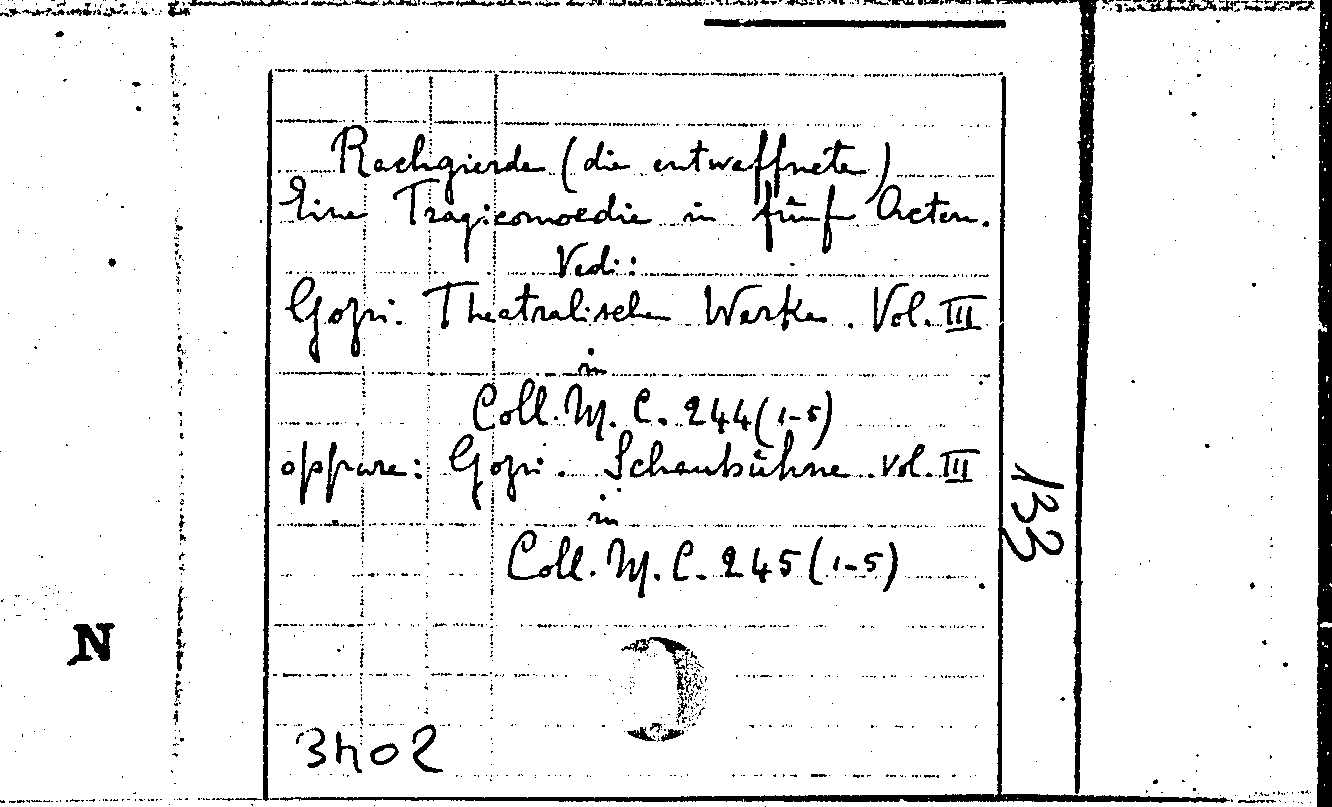 Rachgierde (die entwaffnete)
Eine Tragicomoedie in fünf Acten.
Vedi:
Gozzi. Theatralischen Werke. Vol. III
in
Coll. M. C. 244 (1-5)
oppure: Gozzi. Schaubühne. vol. III
in
Coll. M. C. 245 (1-5)
133
N
3402